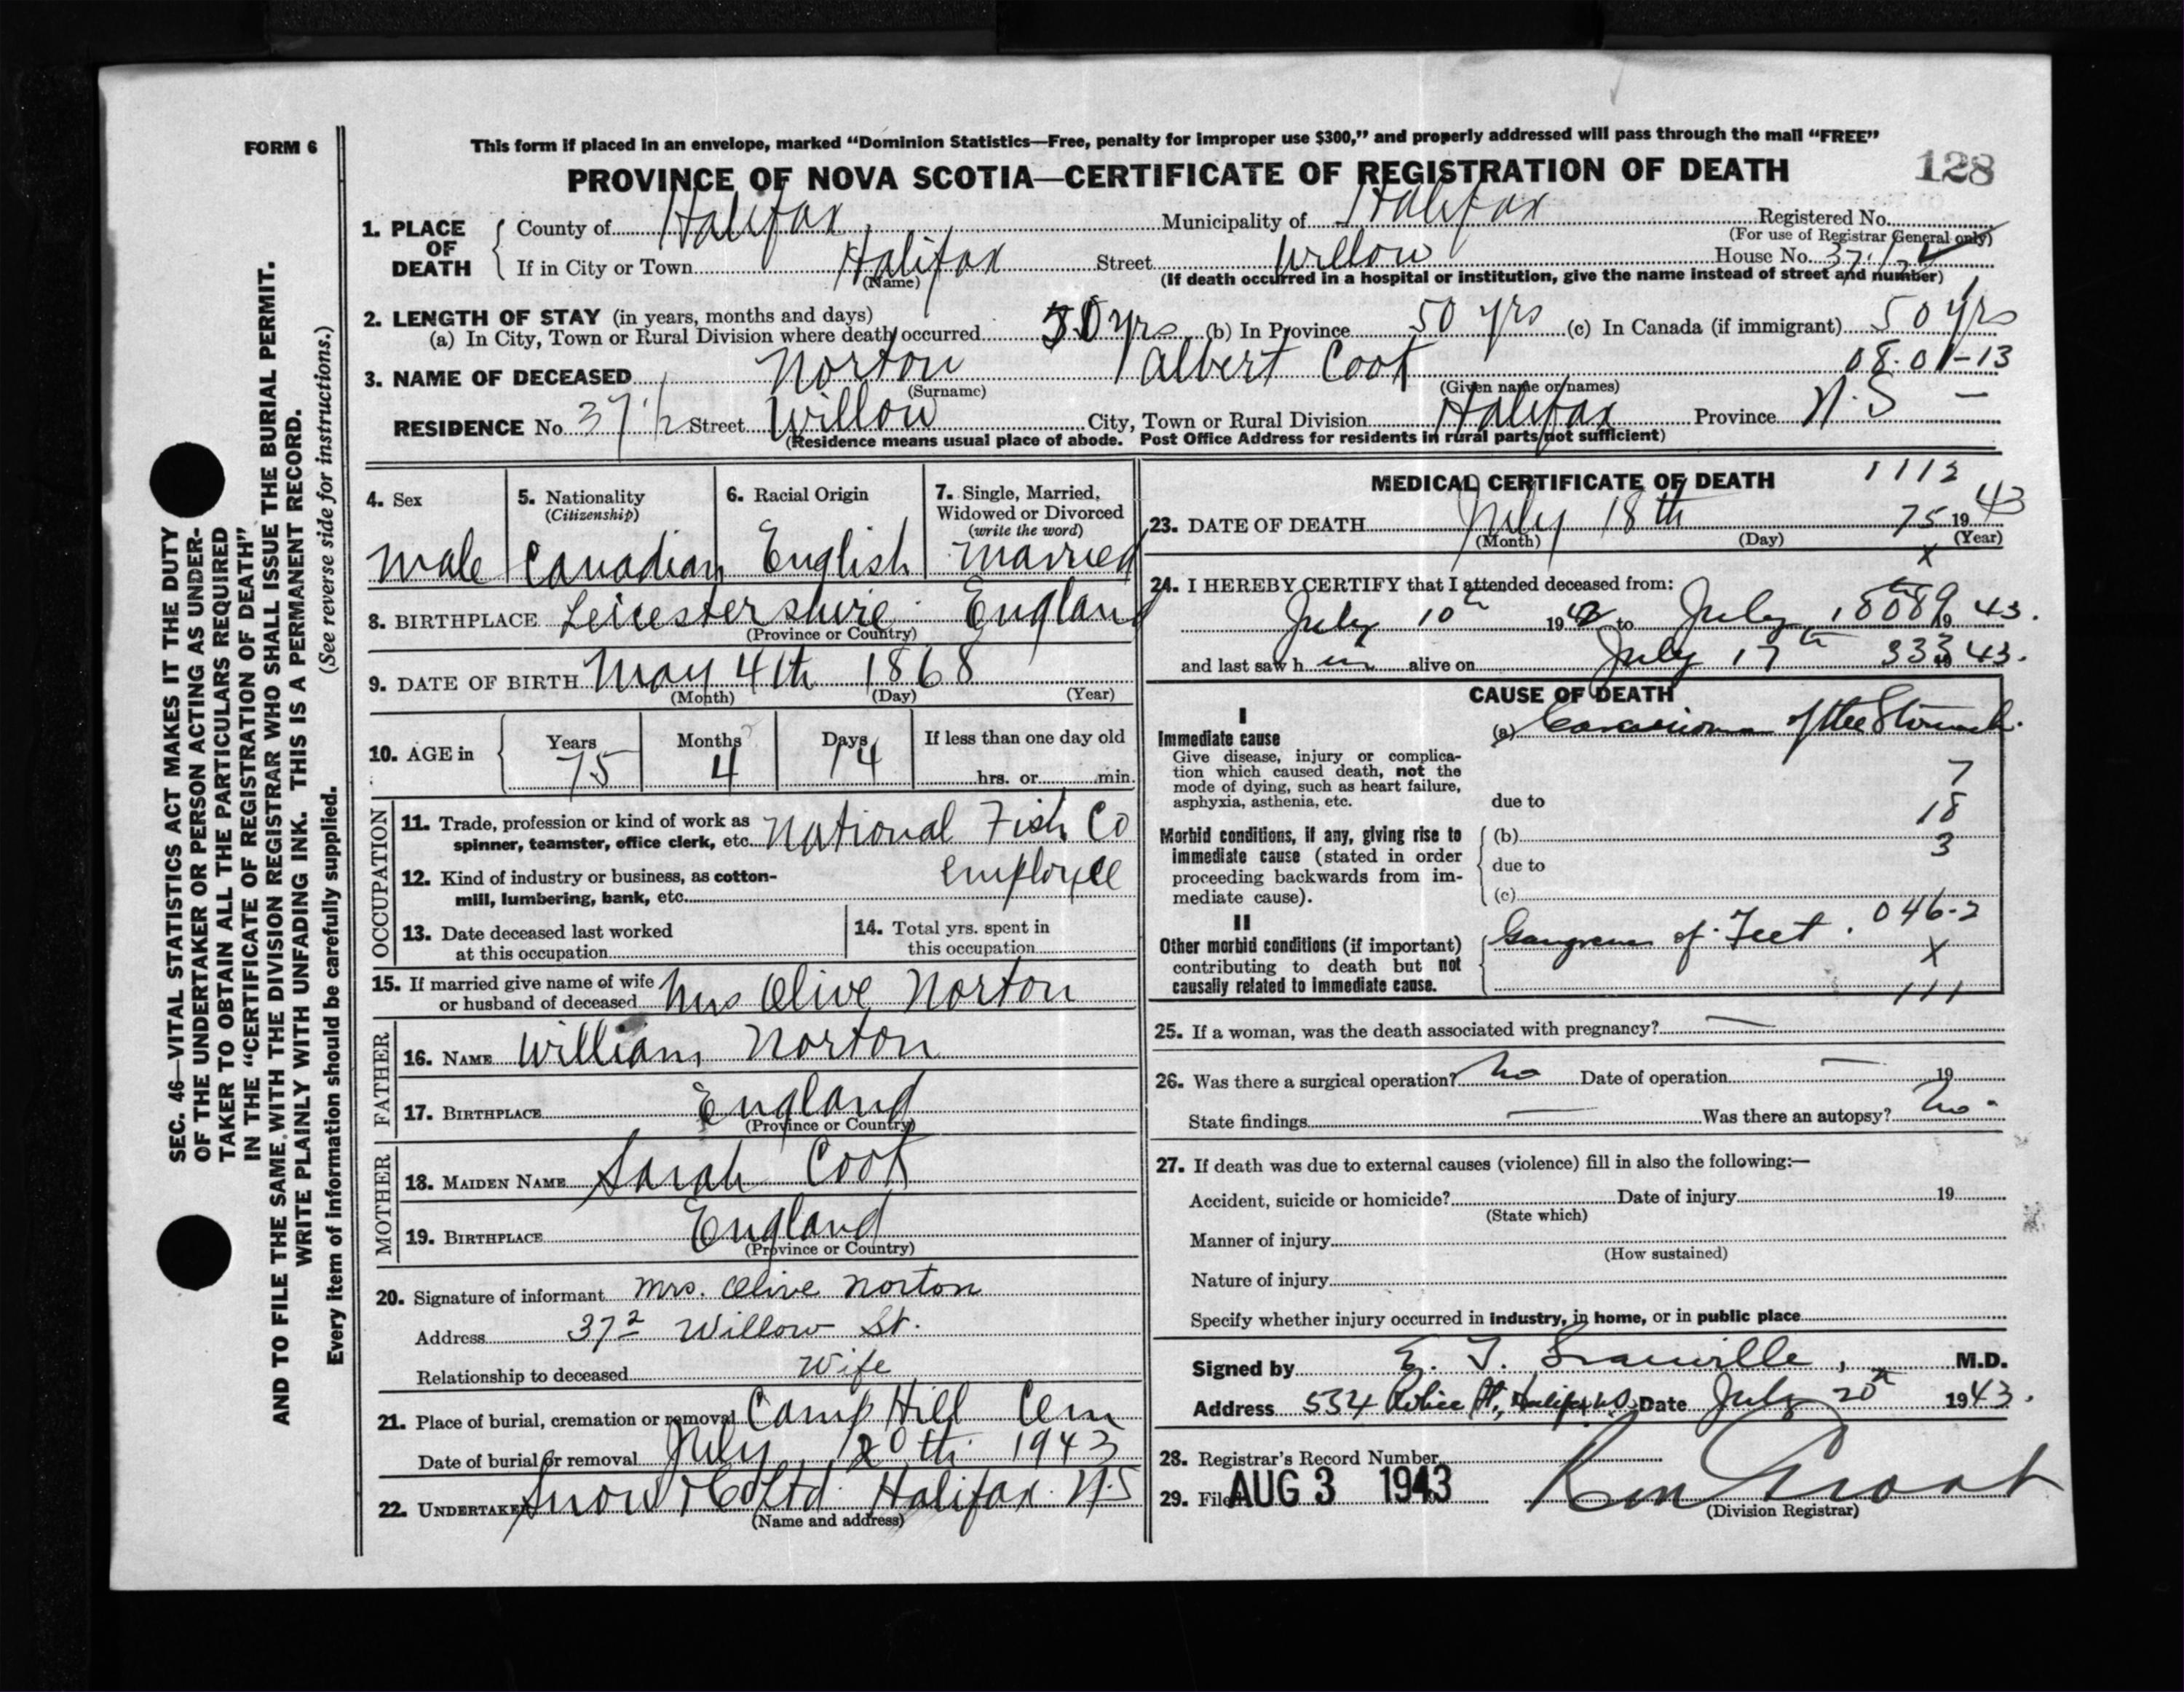 FORM 6
This form if placed in an envelope, marked "Dominion Statistics—Free, penalty for improper use $300," and properly addressed will pass through the mail "FREE"
PROVINCE OF NOVA SCOTIA—CERTIFICATE OF REGISTRATION OF DEATH
128
1. PLACE OF DEATH
County of Halifax Municipality of Halifax Registered No.
(For use of Registrar General only)
If in City or Town Halifax Street Willow House No. 37 1/2
(Name) (If death occurred in a hospital or institution, give the name instead of street and number)
2. LENGTH OF STAY (in years, months and days)
(a) In City, Town or Rural Division where death occurred 50 yrs (b) In Province 50 yrs (c) In Canada (if immigrant) 50 yrs
08.01-13
3. NAME OF DECEASED Norton Albert Coot
(Surname) (Given name or names)
RESIDENCE No. 37 1/2 Street Willow City, Town or Rural Division Halifax Province N.S —
(Residence means usual place of abode. Post Office Address for residents in rural parts not sufficient)
4. Sex
male
5. Nationality
(Citizenship)
Canadian
6. Racial Origin
English
7. Single, Married, Widowed or Divorced
(write the word)
married
8. BIRTHPLACE Leicestershire England
(Province or Country)
9. DATE OF BIRTH May 4th 1868
(Month) (Day) (Year)
10. AGE in
Years 75
Months 4
Days 14
If less than one day old
hrs. or min.
OCCUPATION
11. Trade, profession or kind of work as
spinner, teamster, office clerk, etc. National Fish Co
12. Kind of industry or business, as cotton-
mill, lumbering, bank, etc. employee
13. Date deceased last worked
at this occupation
14. Total yrs. spent in
this occupation
15. If married give name of wife
or husband of deceased Mrs Olive Norton
FATHER
16. NAME William Norton
17. BIRTHPLACE England
(Province or Country)
MOTHER
18. MAIDEN NAME Sarah Coot
19. BIRTHPLACE England
(Province or Country)
20. Signature of informant Mrs. Olive Norton
Address 37 2 Willow St.
Relationship to deceased Wife
21. Place of burial, cremation or removal Camp Hill Cem
Date of burial or removal July 20th 1943
22. UNDERTAKER Snow & Co Ltd. Halifax. N.S
(Name and address)
MEDICAL CERTIFICATE OF DEATH 1112
23. DATE OF DEATH July 18th 75 1943
(Month) (Day) (Year)
x
24. I HEREBY CERTIFY that I attended deceased from:
July 10th 1943 to July 18th 1943.
and last saw him alive on July 17th 333 1943.
CAUSE OF DEATH
I
Immediate cause
Give disease, injury or complica-
tion which caused death, not the
mode of dying, such as heart failure,
asphyxia, asthenia, etc.
(a) Carcinoma of the Stomach.
7
due to
18
Morbid conditions, if any, giving rise to
immediate cause (stated in order
proceeding backwards from im-
mediate cause).
(b)
3
due to
(c)
II
Other morbid conditions (if important)
contributing to death but not
causally related to immediate cause.
Gangrene of Feet. 046-2
X
111
25. If a woman, was the death associated with pregnancy? —
26. Was there a surgical operation? No Date of operation — 19
State findings — Was there an autopsy? No.
27. If death was due to external causes (violence) fill in also the following:—
Accident, suicide or homicide? Date of injury 19
(State which)
Manner of injury
(How sustained)
Nature of injury
Specify whether injury occurred in industry, in home, or in public place
Signed by E. T. Granville, M.D.
Address 534 Halifax Date July 20th 1943.
28. Registrar's Record Number
29. Filed AUG 3 1943
(Division Registrar)
SEC. 46—VITAL STATISTICS ACT MAKES IT THE DUTY
OF THE UNDERTAKER OR PERSON ACTING AS UNDER-
TAKER TO OBTAIN ALL THE PARTICULARS REQUIRED
IN THE "CERTIFICATE OF REGISTRATION OF DEATH"
AND TO FILE THE SAME WITH THE DIVISION REGISTRAR WHO SHALL ISSUE THE BURIAL PERMIT.
WRITE PLAINLY WITH UNFADING INK. THIS IS A PERMANENT RECORD.
Every item of information should be carefully supplied. (See reverse side for instructions.)